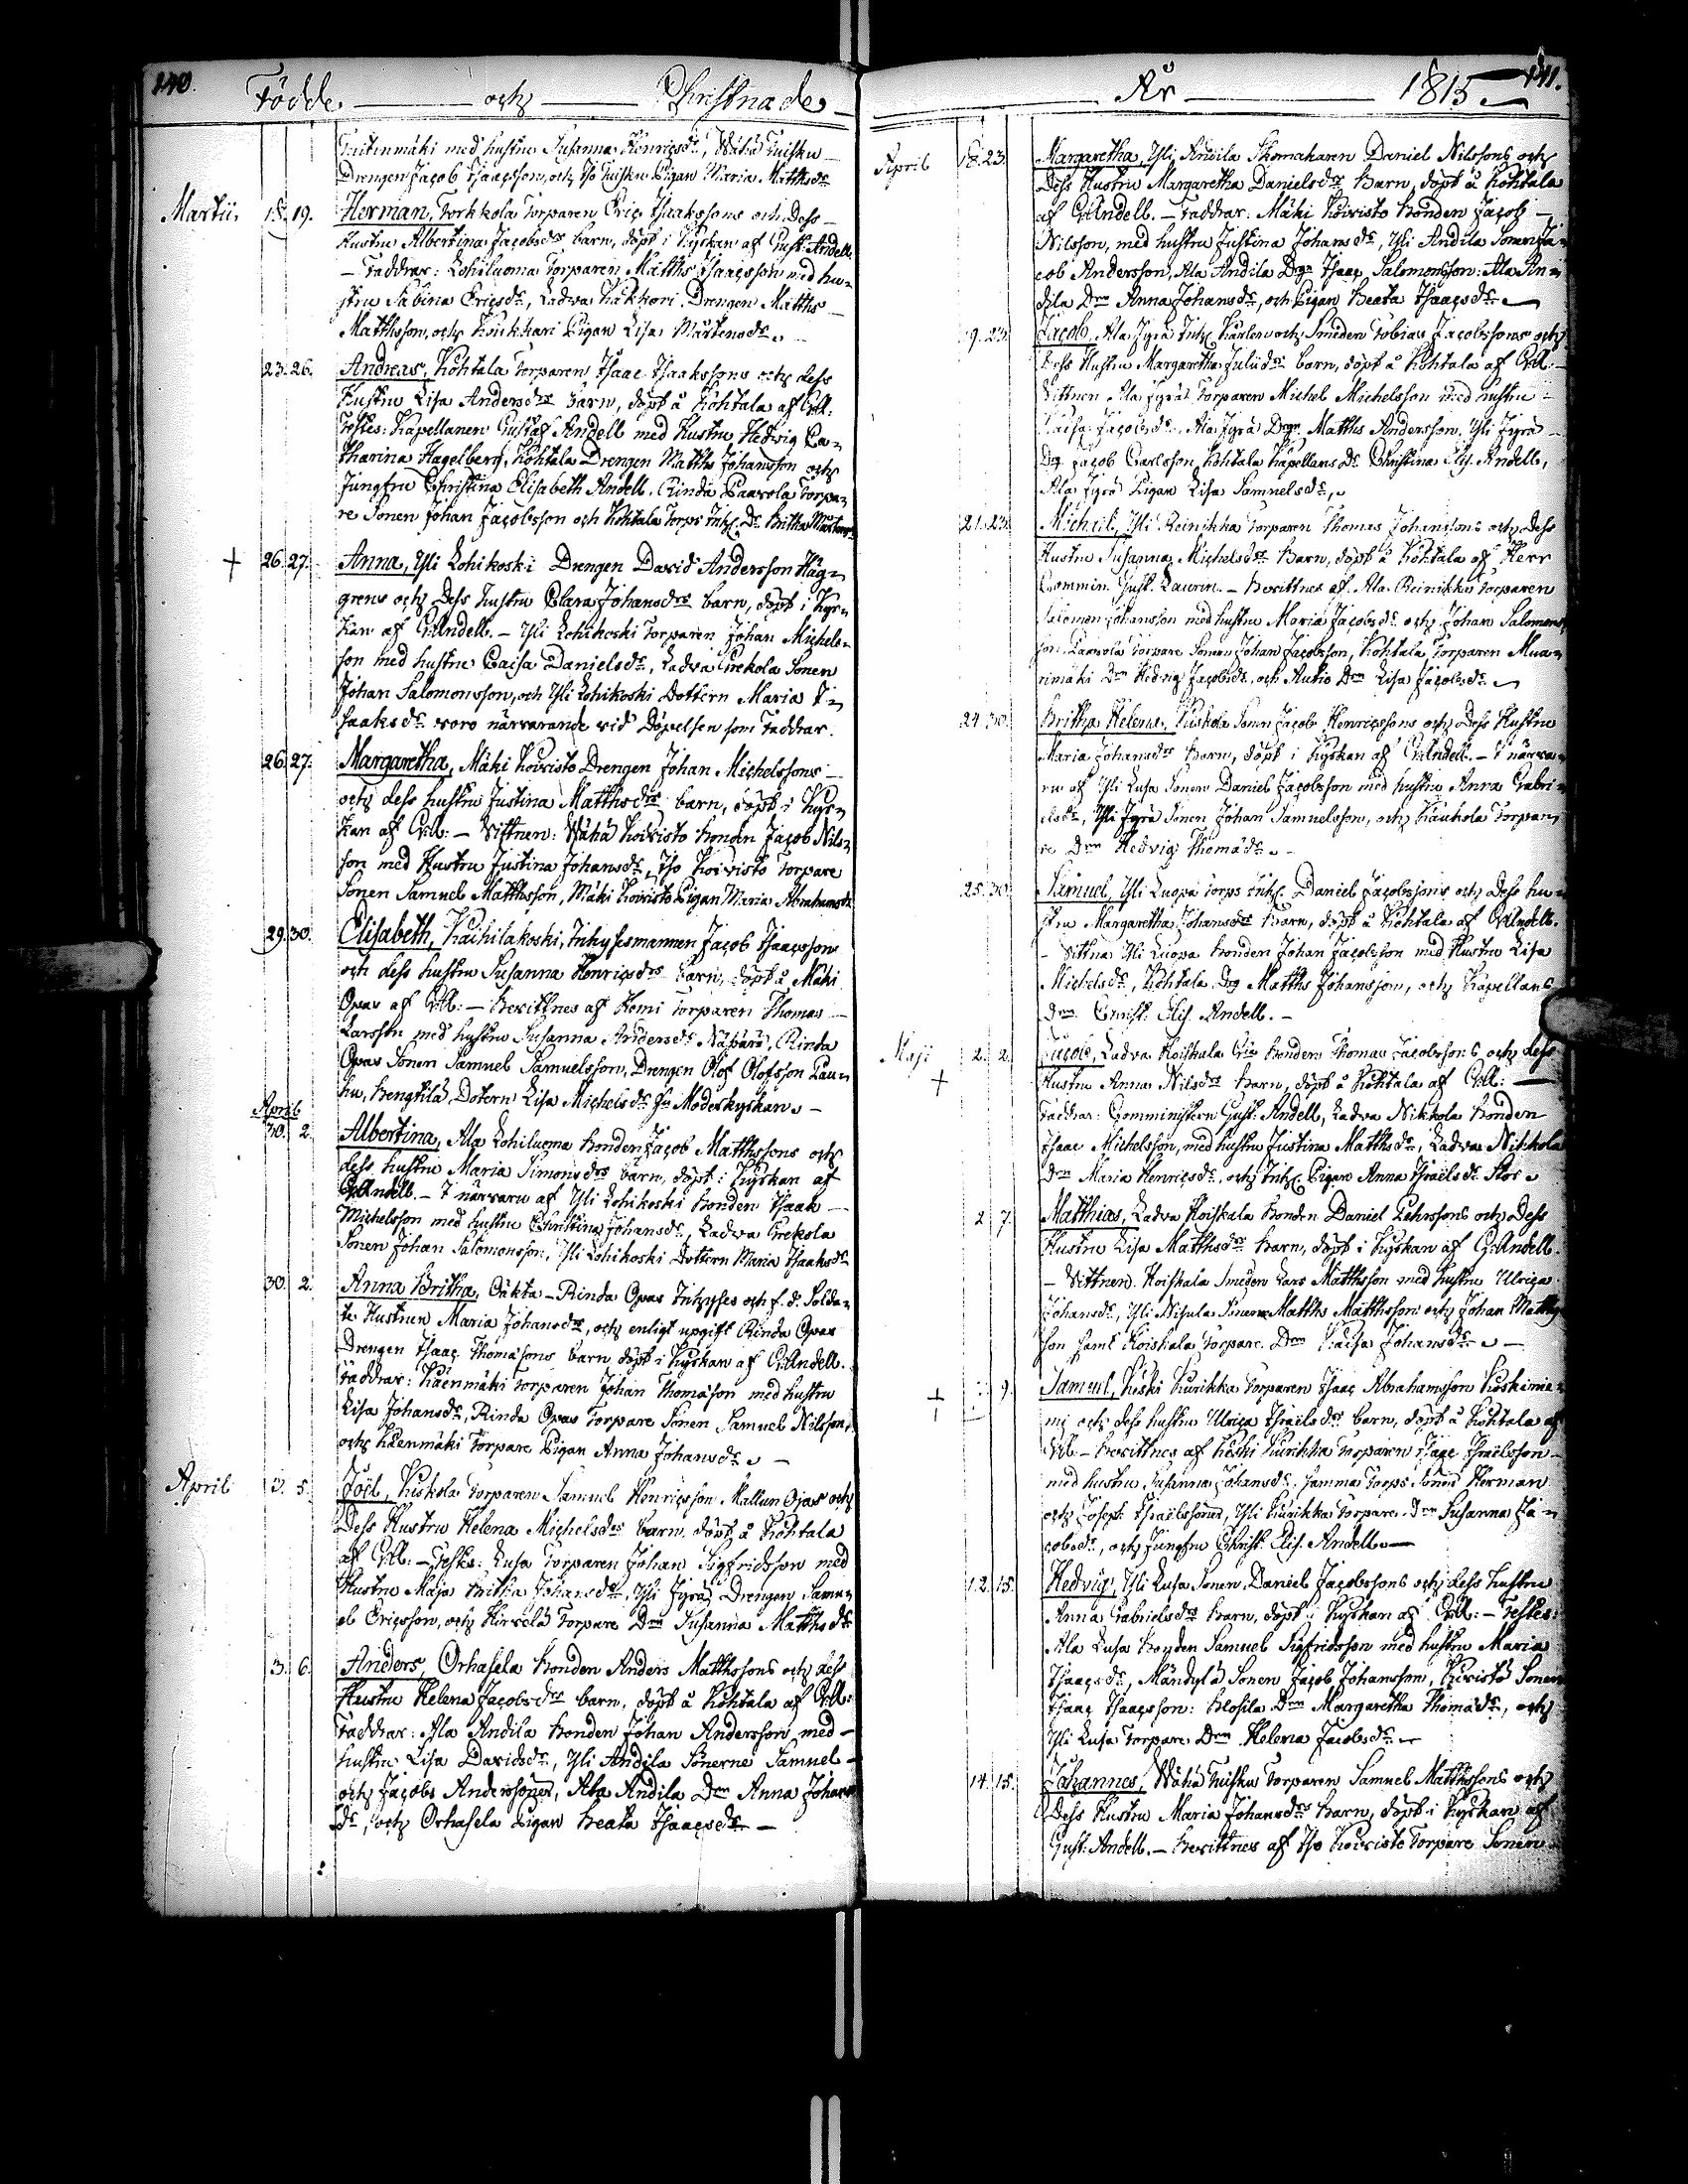 140.
Födde och Christnade
med hustru Susanna Henricsdr, Wähä Tuisku
Drengen Jacob Isaacsson, och Iso Tuisku Pigan Maria Matthsdr
Martii 18. 19. Herman, Torkkola Torparen Eric Isaakssons och Dess
Hustru Albertina Jacobsdrs barn, döpt i Kyrkan af Gust: Andell.
– Faddrar: Lohiluoma Torparen Matths Isaacsson med hu-
stru Sabina Ericsdr, Ladva Drengen Matths
Matthsson, och Pigan Lisa Mårtensdr.
23. 26. Andreas, Kohtala Torparen Isaac Isaakssons och dess
Hustru Lisa Andersdrs barn, döpt å Kohtala af G:A:ll:
Testes: Kapellanen Gustaf Andell med Hustru Hedvig Ca-
tharina Hagelberg, Kohtala Drengen Matths Johansson och
Jungfru Christina Elisabeth Andell. Rinda Paavola Torpa-
re Sonen Johan Jacobsson och Kohtala Torps Inhs. Dr Britha Mårtensdr
+ 26. 27. Anna, Yli Lohikoski Drengen David Andersson Häg-
grens och Dess hustru Clara Johansdrs barn, döpt i Kyr-
kan af G:Andell. – Yli Lohikoski Torparen Johan Michels-
son med hustru Caisa Danielsdr, Ladva Grekola Sonen
Johan Salomonsson, och Yli Lohikoski Dottern Maria I-
saaksdr. voro närvarande vid Döpelsen som Faddrar.
26. 27. Margaretha, Mäki Koivisto Drengen Johan Michelssons
och dess hustru Justina Matthsdrs barn, döpt i Kyr-
kan af G:A:ll: – Vittnen: Wähä Koivisto bonden Jacob Nils-
son med Hustru Justina Johansdr, Iso Koivisto Torpare
Sonen Samuel Matthsson, Mäki Koivisto Pigan Maria Abrahamsdr
29. 30. Elisabeth, Kaihilakoski, Inhysesmannen Jacob Isaacssons
och dess hustru Susanna Henricsdrs barn, döpt å Mäki
Opas af G:A:ll: – Bevittnes af Kemi Torparen Thomas
Larsson med hustru Susanna Andersdr Näpärä, Rinda
Opas Sonen Samuel Samuelsson, Drengen Olof Olofsson
Bengtilä Dotern Lisa Michelsdr Moderkyrkan. –
April
30. 2. Albertina, Ala Lohiluoma bonden Jacob Matthssons och
dess hustru Maria Simonsdrs barn, döpt i Kyrkan af
G:Andell. – I närvaru af Yli Lohikoski bonden Isaak
Michelsson med hustru Christina Johansdr, Ladva Grekola
Sonen Johan Salomonsson, Yli Lohikoski Dottern Maria Isaaksdr
30. 2. Anna Britha, Oäkta – Rinda Opas Inhyses och f. d. Solda-
te Hustrun Maria Johansdrs, och enligt upgift Rinda Opas
Drengen Isaac Thomasons barn döpt i Kyrkan af G:Andell.
Faddrar: Torparen Johan Thomasson med hustru
Lisa Johansdr, Rinda Opas Torpare Sonen Samuel Nilsson,
och Torpare Pigan Anna Johansdr. –
April 3. 5. Joel, Kuskola Torparen Samuel Henricsson Mallun Ojas och
Dess Hustru Helena Michelsdrs barn, döpt å Kohtala
af G:A:ll: – Testes: Lusa Torparen Johan Sigfridsson med
Hustru Maja Britha Johansdr, Yli Jyrä Drengen Samu-
el Ericsson, och Torpare Drn Susanna Matthsdr
3. 6. Anders, Orhasela Bonden Anders Matthssons och dess
Hustru Helena Jacobsdrs barn, döpt å Kohtala af G:A:ll:
Faddrar: Ala Andila bonden Johan Andersson med
hustru Lisa Davidsdr, Yli Andila Sönerne Samuel
och Jacobs Anderssöner, Ala Andila Drn Anna Johans
dr, och Orhasela Pigan Beata Isaacsdr –
År 1815 141.
April 18. 23. Margaretha, Yli Andila Skomakaren Daniel Nilssons och
Dess Hustru Margaretha Danielsdrs Barn, döpt å Kohtala
af G:Andell. – Faddrar: Mäki Koivisto bonden Jacob
Nilsson, med hustru Justina Johansdr, Yli Andila Sonen Ja-
cob Andersson, Ala Andila Drgn Isaac Salomonsson: Ala An-
dila Drn Anna Johansdr, och Pigan Beata Isaacsdr.
19. 23. Jacob, Ala Jyrä Inhs. Karlen och Smeden Tobias Jacobssons och
Dess Hustru Margaretha barn, döpt å Kohtala af G:A:ll: –
Vittnen Ala Jyrä Torparen Michel Michelsson med hustru
Caisa Jacobsdr, Ala Jyrä Drgn Matths Andersson, Yli Jyrä
Drg Jacob Carlsson, Kohtala Kapellans Dr Christina Elis. Andell,
Ala Jyrä Pigan Lisa Samuelsdr.
21. 23. Michael, Yli Reinikka Torparen Thomas Johanssons och Dess
Hustru Susanna Michelsdrs barn, döpt å Kohtala af Herr
Commin. Gust. Laurin. – Bevittnes af Ala Reinikka Torparen
Salomon Johansson med hustru Maria Jacobsdr och Johan Salomons-
son, Paavola Torpare Sonen Johan Jacobsson, Kohtala Torparen Mua-
rimäki Drn Hedvig Jacobsdr, och Autio Drn Lisa Jacobsdr.
24. 30. Britha Helena, Kuskola Sonen Jacob Henricssons och Dess Hustru
Maria Johansdrs barn, döpt i Kyrkan af G:Andell. – I närva-
ru af Yli Lusa Sonen Daniel Jacobsson med hustru Anna Gabri-
elsdr, Yli Jyrä Sonen Johan Samuelsson, och Kauhola Torpa-
re Drn Hedvig Thomädr. –
25. 30. Samuel, Yli Luopa Torps Inhs. Daniel Jacobssons och dess hu-
stru Margaretha Johansdrs barn, döpt å Kohtala af G:Andell.
– Vittna Yli Luopa bonden Johan Jacobsson med Hustru Lisa
Michelsdr, Kohtala Drg Matths Johansson, och Kapellans
Drn Christ: Elis. Andell. –
Maji 2. 2. Jacob, Ladva Koiskala bonden Thomas Jacobssons och dess
+ Hustru Anna Nilsdrs barn, döpt å Kohtala af G:A:ll: –
Faddrar: Comministern Gust: Andell, Ladva Nikkola bonden
Isaac Michelsson, med hustru Justina Matthsdr, Ladva Nikkola
Drn Maria Henricsdr, och Inhs. Pigan Anna Israelsdr Stor.
2. 7. Matthias, Ladva Koiskala bonden Daniel Gehrssons och Dess
Hustru Lisa Matthsdrs barn, döpt i Kyrkan af G:Andell.
– Vittnen. Koiskala Smeden Lars Matthsson med hustru Ulrica
Johansdr, Yli Nisula Sönerne Matths Matthsson och Johan Matths-
son samt Koiskala Torpare Drn Caisa Johansdr. –
+ 9. Samuel, Koski Kurikka Torparen Isaac Abrahamsson Koskinie-
mi och dess hustru Ulrica Israelsdrs barn, döpt å Kohtala af
G:A:ll – Bevittnes af Koski Kurikka Torparen Isaac Israelsson
med hustru Susanna Johansdr, samma Torps Söner Herman
och Joseph Israelssöner, Yli Kurikka Torpare Drn Susanna Ja-
cobsdr, och Jungfru Christ: Elis: Andell. –
12. 15. Hedvig, Yli Lusa Sonen Daniel Jacobssons och dess hustru
Anna Gabrielsdrs barn, döpt i Kyrkan af G:A:ll: – Testes:
Ala Lusa bonden Samuel Sigfridsson med hustru Maria
Isaacsdr, Mändylä Sonen Jacob Johansson, Koivisto Sonen
Isaac Isaacsson: Drn Margaretha Thomädr, och
Yli Lusa Torpare Drn Helena Jacobsdr.
14. 15. Johannes, Wähä Tuisku Torparen Samuel Matthssons och
Dess Hustru Maria Johansdrs barn, döpt i Kyrkan af
Gust: Andell. – Bevittnes af Iso Koivisto Torpare Sonen